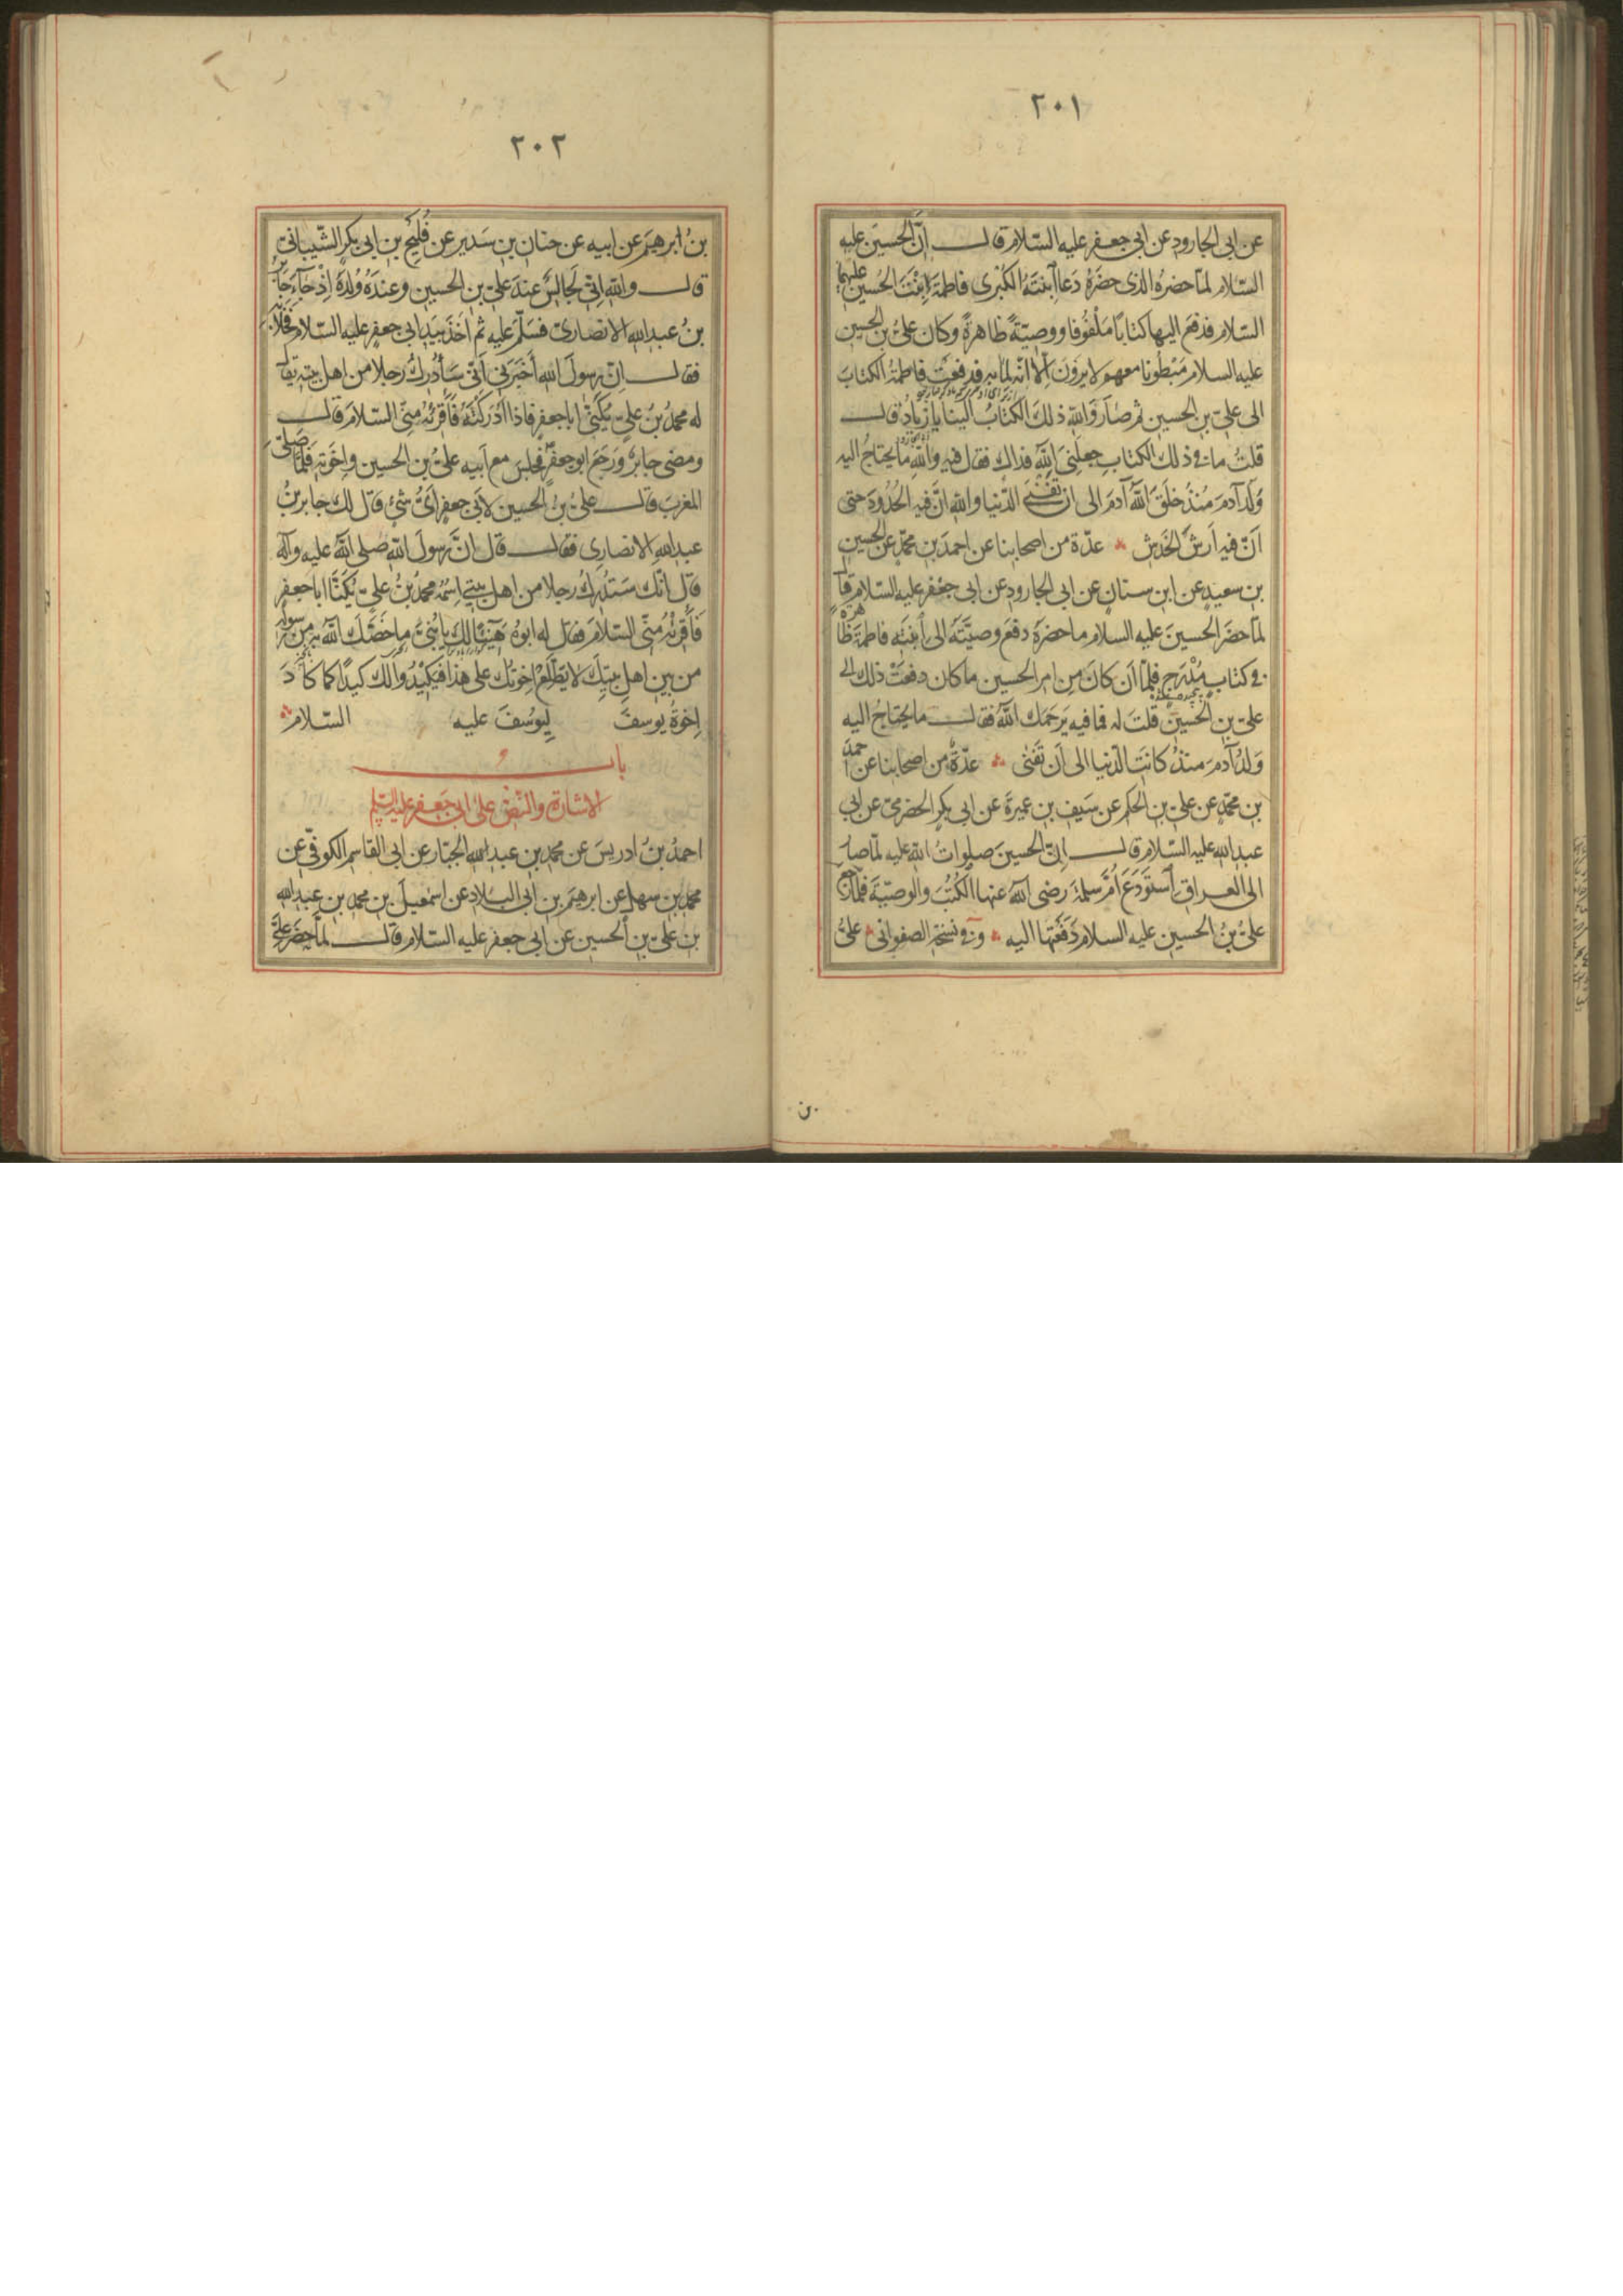 ٢٠١
عن ابى الجارود عن ابى جعفر عليه السّلام قال انّ الحسين عليه
السّلام لمّا حضره الذى حضره دعا ابنته الكبرى فاطمة ابنت الحسين عليهما
السّلام فدفع اليها كتابا ملفوفا ووصيّة ظاهرة وكان علىّ بن الحسين
عليه السلام مبطونا معهم لا يرون الّا انّه لما به فدفعت فاطمة الكتاب
الى علىّ بن الحسين ثم صار والله ذلك الكتاب الينا يا زياد قال
قلت ما فى ذلك الكتاب جعلنى الله فداك فقال فيه والله ما يحتاج اليه
ولد آدم منذ خلق الله آدم الى ان تفنى الدّنيا والله انّ فيه الحدود حتى
انّ فيه ارش الخدش عدّة من اصحابنا عن احمد بن محمّد عن الحسين
بن سعيد عن ابن سنان عن ابى الجارود عن ابى جعفر عليه السّلام قال
لمّا حضر الحسين عليه السلام ما حضره دفع وصيّته الى ابنته فاطمة ظاهرة
فى كتاب مدرج فلمّا ان كان من امر الحسين ما كان دفعت ذلك الى
علىّ بن الحسين قلت له فما فيه يرحمك الله فقال ما يحتاج اليه
ولد آدم منذ كانت الدّنيا الى ان تفنى عدّة من اصحابنا عن احمد
بن محمّد عن علىّ بن الحكم عن سيف بن عميرة عن ابى بكر الحضرمىّ عن ابى
عبد الله عليه السّلام قال انّ الحسين صلوات الله عليه لمّا صار
الى العراق استودع امّ سلمة رضى الله عنها الكتب والوصيّة فلمّا رجع
علىّ بن الحسين عليه السلام دفعتها اليه وفى نسخة الصفوانى علىّ
بن
٢٠٢
بن ابرهيم عن ابيه عن حنان بن سدير عن فليح بن ابى بكر الشّيبانى
قال والله انّى لجالس عند علىّ بن الحسين وعنده ولده اذ جاءه جابر
بن عبد الله الانصارىّ فسلّم عليه ثم اخذ بيد ابى جعفر عليه السّلام فخلا به
فقال انّ رسول الله اخبرنى انّى سأدرك رجلا من اهل بيته يقال
له محمد بن علىّ يكنّى ابا جعفر فاذا ادركته فأقرئه منّى السّلام قال
ومضى جابر ورجع ابو جعفر فجلس مع ابيه علىّ بن الحسين واخوته فلمّا صلّى
المغرب قال علىّ بن الحسين لابى جعفر اىّ شئ قال لك جابر بن
عبد الله الانصارى فقال قال انّ رسول الله صلى الله عليه وآله
قال انّك ستدرك رجلا من اهل بيتى اسمه محمد بن علىّ يكنّا ابا جعفر
فأقرئه منّى السّلام فقال له ابوه هنيئا لك يا بنىّ ما خصّك الله به من رسوله
من بين اهل بيتك لا تطلع اخوتك على هذا فيكيدوا لك كيدا كما كاد
اخوة يوسف ليوسف عليه السّلام
باب
الاشارة والنّصّ على ابى جعفر عليه السّلم
احمد بن ادريس عن محمد بن عبد الله الجبّار عن ابى القاسم الكوفىّ عن
محمد بن سهل عن ابرهيم بن ابى البلاد عن اسمعيل بن محمد بن عبد الله
بن علىّ بن الحسين عن ابى جعفر عليه السّلام قال لمّا حضر علىّ